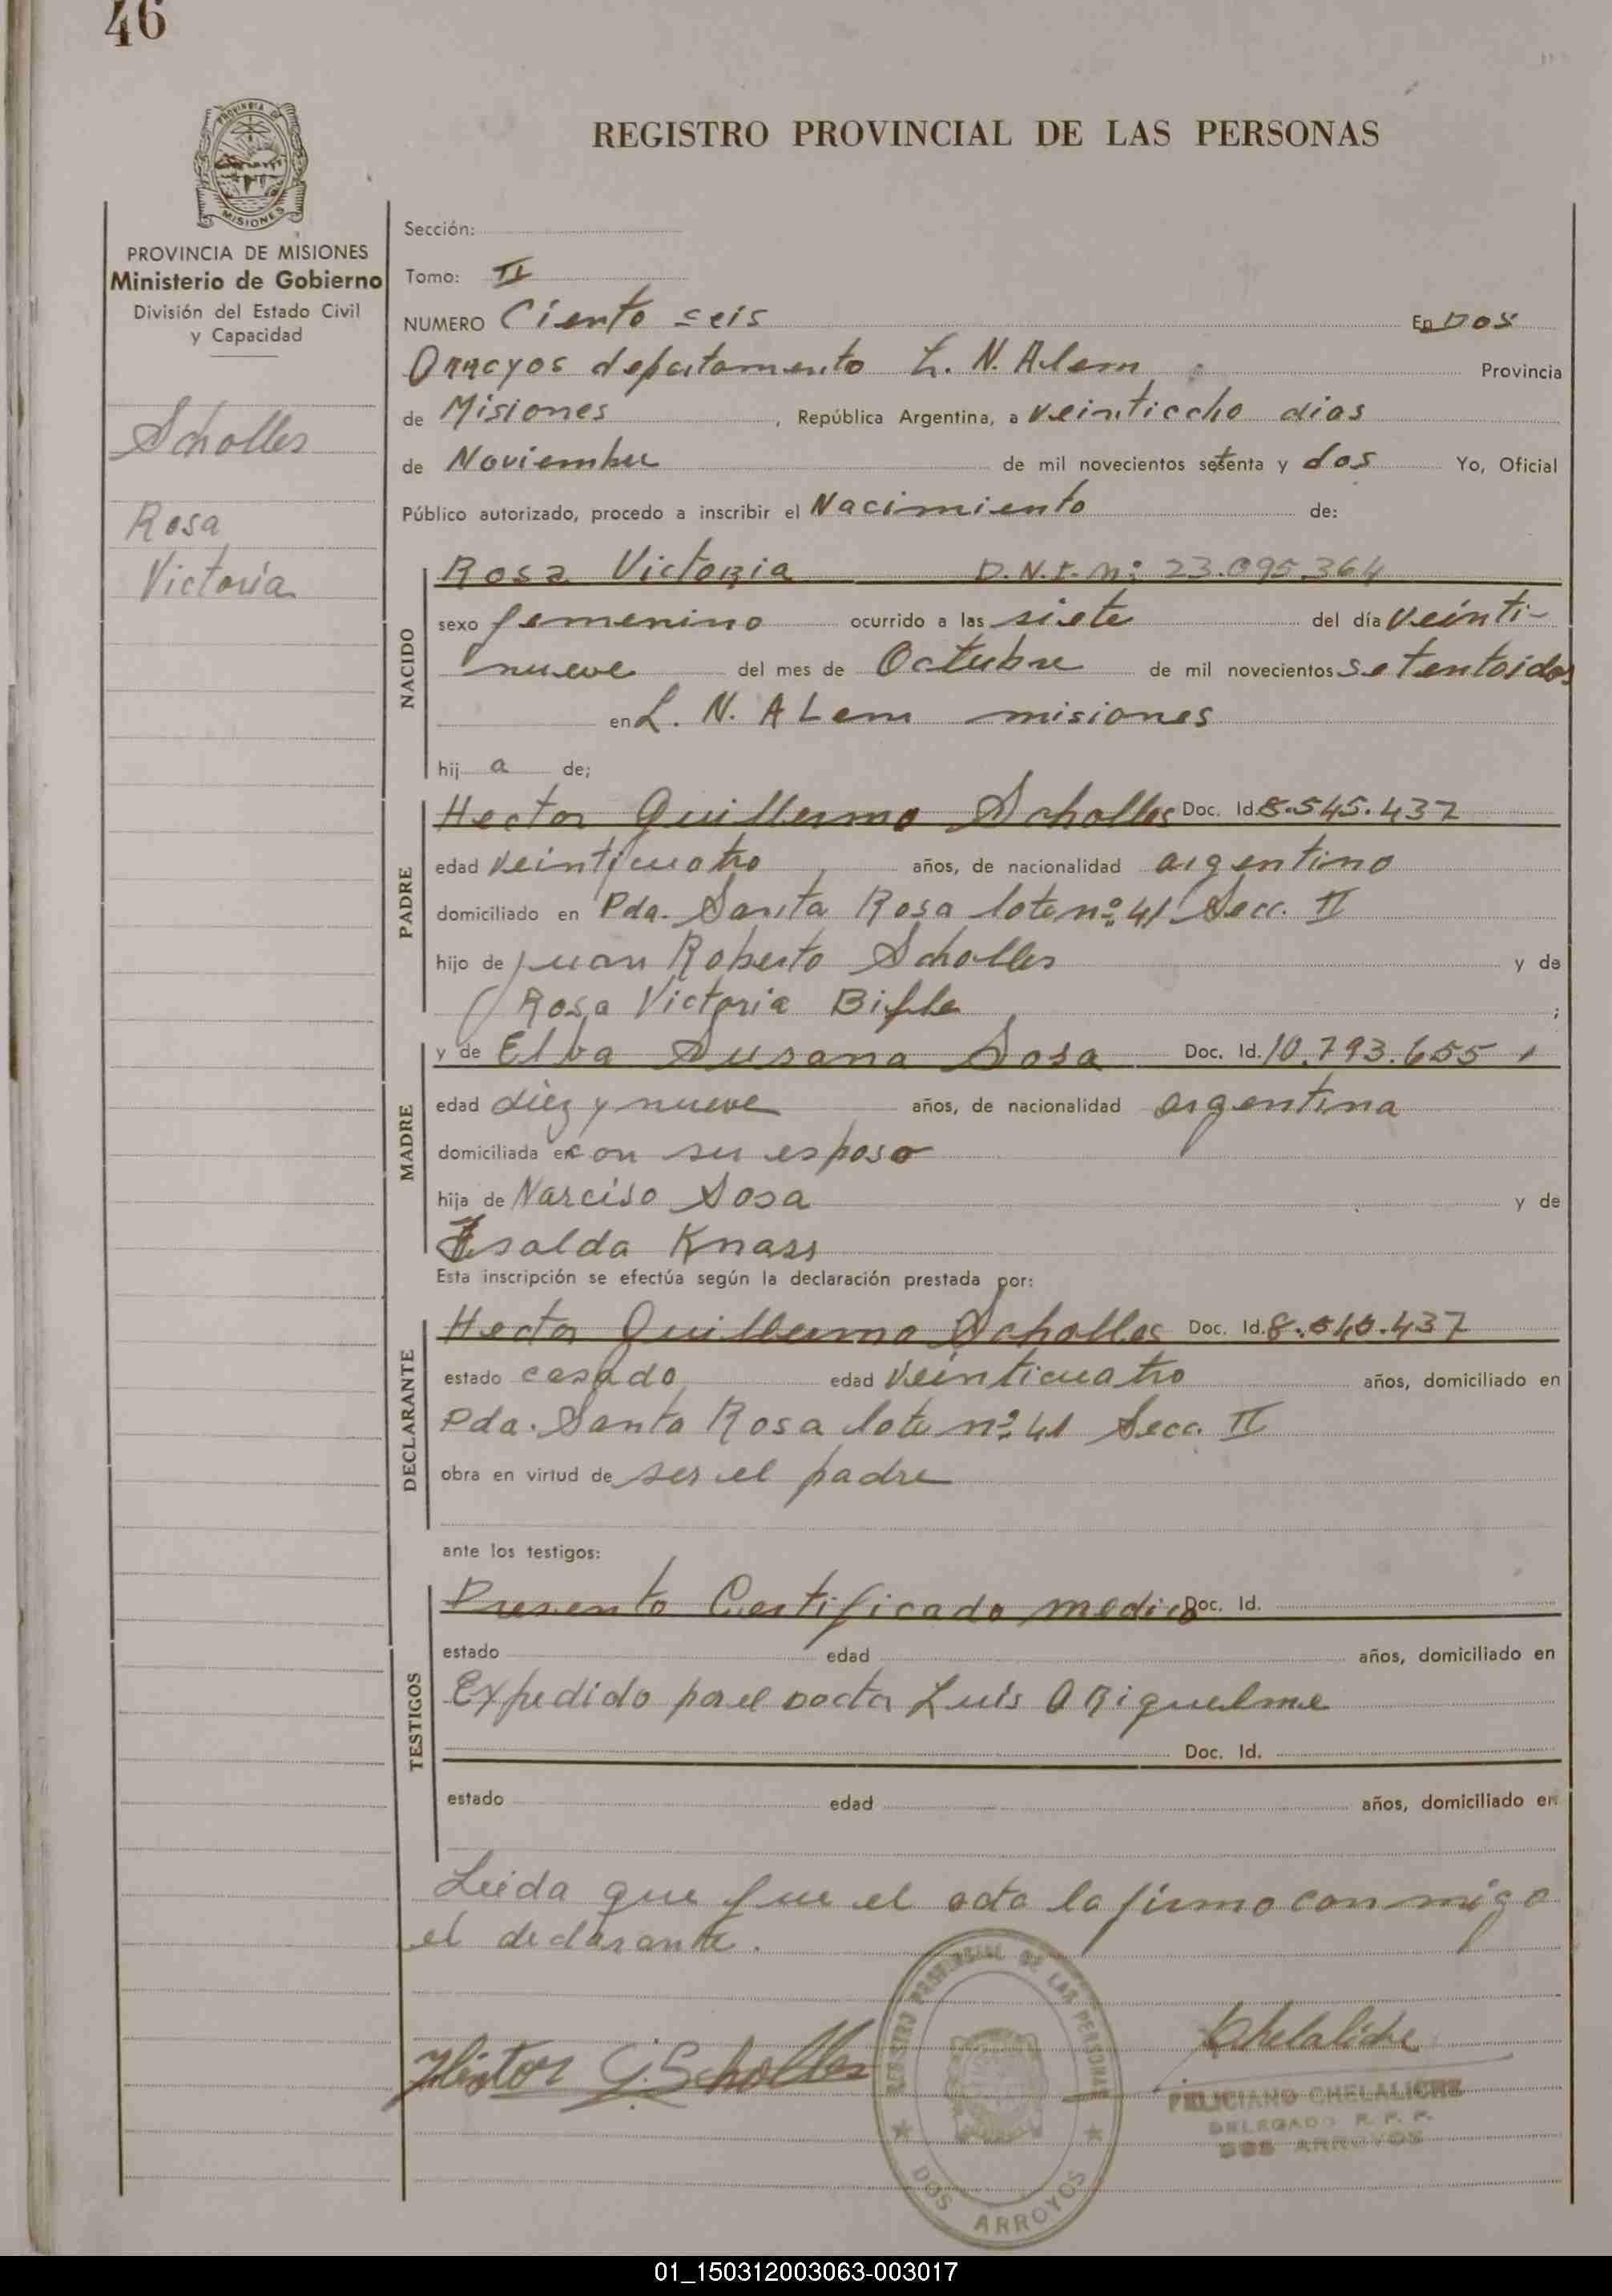 46
PROVINCIA DE
MISIONES
PROVINCIA DE MISIONES
Ministerio de Gobierno
División del Estado Civil
y Capacidad
Scholles
Rosa
Victoria
REGISTRO PROVINCIAL DE LAS PERSONAS
Sección:
Tomo: II
NUMERO Ciento seis En Dos
Arroyos departamento L. N. Alem Provincia
de Misiones, República Argentina, a veintiocho dias
de Noviembre de mil novecientos setenta y dos Yo, Oficial
Público autorizado, procedo a inscribir el Nacimiento de:
NACIDO
Rosa Victoria D.N.I. Nº 23.095.364
sexo femenino ocurrido a las siete del día veinti-
nueve del mes de Octubre de mil novecientos setentaidos
en L. N. ALem misiones
hij a de;
PADRE
Hector Guillermo Scholles Doc. Id. 8.545.437
edad veinticuatro años, de nacionalidad argentino
domiciliado en Pda. Santa Rosa lote nº 41 Secc. II
hijo de Juan Roberto Scholles y de
Rosa Victoria ;
MADRE
y de Elba Susana Sosa Doc. Id. 10.793.655
edad diez y nueve años, de nacionalidad argentina
domiciliada en con su esposo
hija de Narciso Sosa y de
Isolda Knass
Esta inscripción se efectúa según la declaración prestada por:
DECLARANTE
Hector Guillermo Scholles Doc. Id. 8.545.437
estado casado edad veinticuatro años, domiciliado en
Pda. Santa Rosa lote nº 41 Secc. II
obra en virtud de ser el padre
ante los testigos:
TESTIGOS
Presento Certificado medico Doc. Id.
estado edad años, domiciliado en
Expedido por el Doctor Luis A Riquelme
Doc. Id.
estado edad años, domiciliado en
Leida que fue el acta la firmo conmigo
el declarante.
Hector G. Scholles
Chelaliche
REGISTRO PROVINCIAL DE LAS PERSONAS
DOS ARROYOS
FELICIANO CHELALICHE
DELEGADO R. P. P.
DOS ARROYOS
01_150312003063-003017